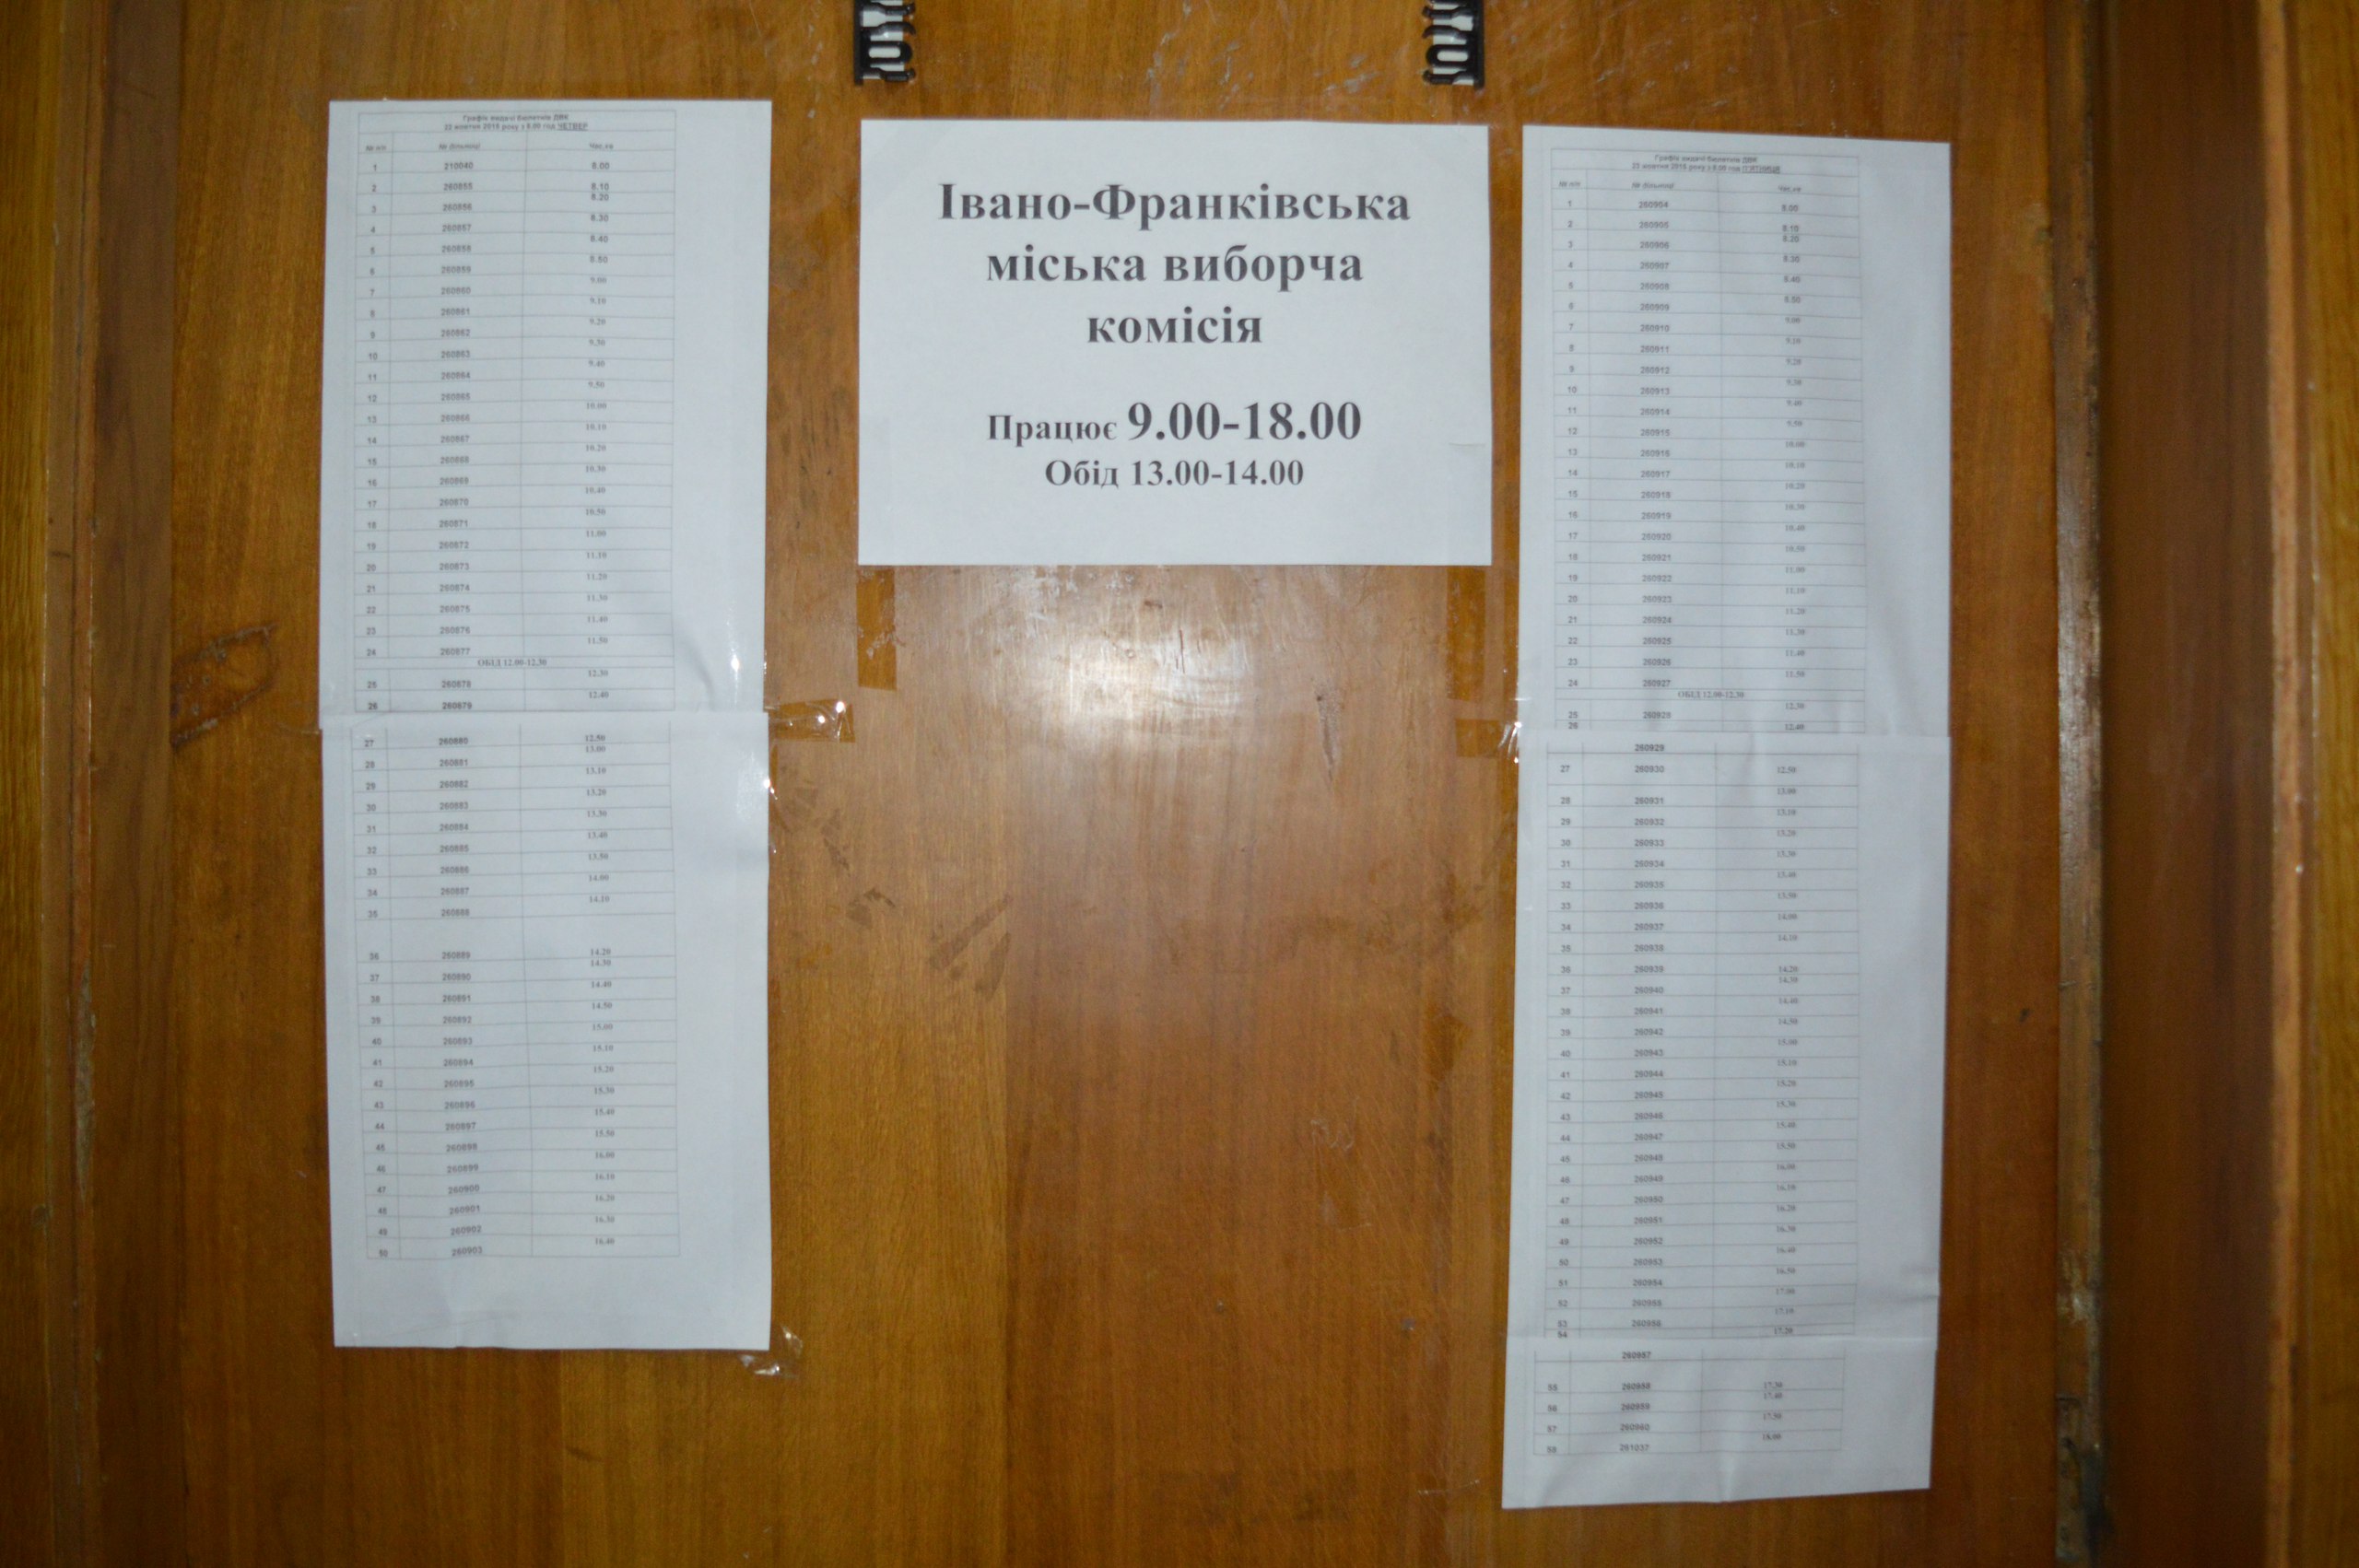 Графік видачі бюлетнів ДВК
22 жовтня 2015 року з 8.00 год ЧЕТВЕР
№ п/п № дільниці Час, хв
1 210040 8.00
2 260855 8.10
3 260856 8.20
4 260857 8.30
5 260858 8.40
6 260859 8.50
7 260860 9.00
8 260861 9.10
9 260862 9.20
10 260863 9.30
11 260864 9.40
12 260865 9.50
13 260866 10.00
14 260867 10.10
15 260868 10.20
16 260869 10.30
17 260870 10.40
18 260871 10.50
19 260872 11.00
20 260873 11.10
21 260874 11.20
22 260875 11.30
23 260876 11.40
24 260877 11.50
ОБІД 12.00-12.30
25 260878 12.30
26 260879 12.40
27 260880 12.50
28 260881 13.00
29 260882 13.10
30 260883 13.20
31 260884 13.30
32 260885 13.40
33 260886 13.50
34 260887 14.00
35 260888 14.10
36 260889 14.20
37 260890 14.30
38 260891 14.40
39 260892 14.50
40 260893 15.00
41 260894 15.10
42 260895 15.20
43 260896 15.30
44 260897 15.40
45 260898 15.50
46 260899 16.00
47 260900 16.10
48 260901 16.20
49 260902 16.30
50 260903 16.40
Івано-Франківська
міська виборча
комісія
Працює 9.00-18.00
Обід 13.00-14.00
Графік видачі бюлетнів ДВК
жовтня 2015 року з 8.00 год П'ЯТНИЦЯ
№ п/п № дільниці Час, хв
1 260904 8.00
2 260905 8.10
3 260906 8.20
4 260907 8.30
5 260908 8.40
6 260909 8.50
7 260910 9.00
8 260911 9.10
9 260912 9.20
10 260913 9.30
11 260914 9.40
12 260915 9.50
13 260916 10.00
14 260917 10.10
15 260918 10.20
16 260919 10.30
17 260920 10.40
18 260921 10.50
19 260922 11.00
20 260923 11.10
21 260924 11.20
22 260925 11.30
23 260926 11.40
24 260927 11.50
ОБІД 12.00-12.30
25 260928 12.30
26 12.40
260929
27 260930 12.50
28 260931 13.00
29 260932 13.10
30 260933 13.20
31 260934 13.30
32 260935 13.40
33 260936 13.50
34 260937 14.00
35 260938 14.10
36 260939 14.20
37 260940 14.30
38 260941 14.40
39 260942 14.50
40 260943 15.00
41 260944 15.10
42 260945 15.20
43 260946 15.30
44 260947 15.40
45 260948 15.50
46 260949 16.00
47 260950 16.10
48 260951 16.20
49 260952 16.30
50 260953 16.40
51 260954 16.50
52 260955 17.00
53 260956 17.10
54 17.20
260957
55 260958 17.30
56 260959 17.40
57 260960 17.50
58 261037 18.00